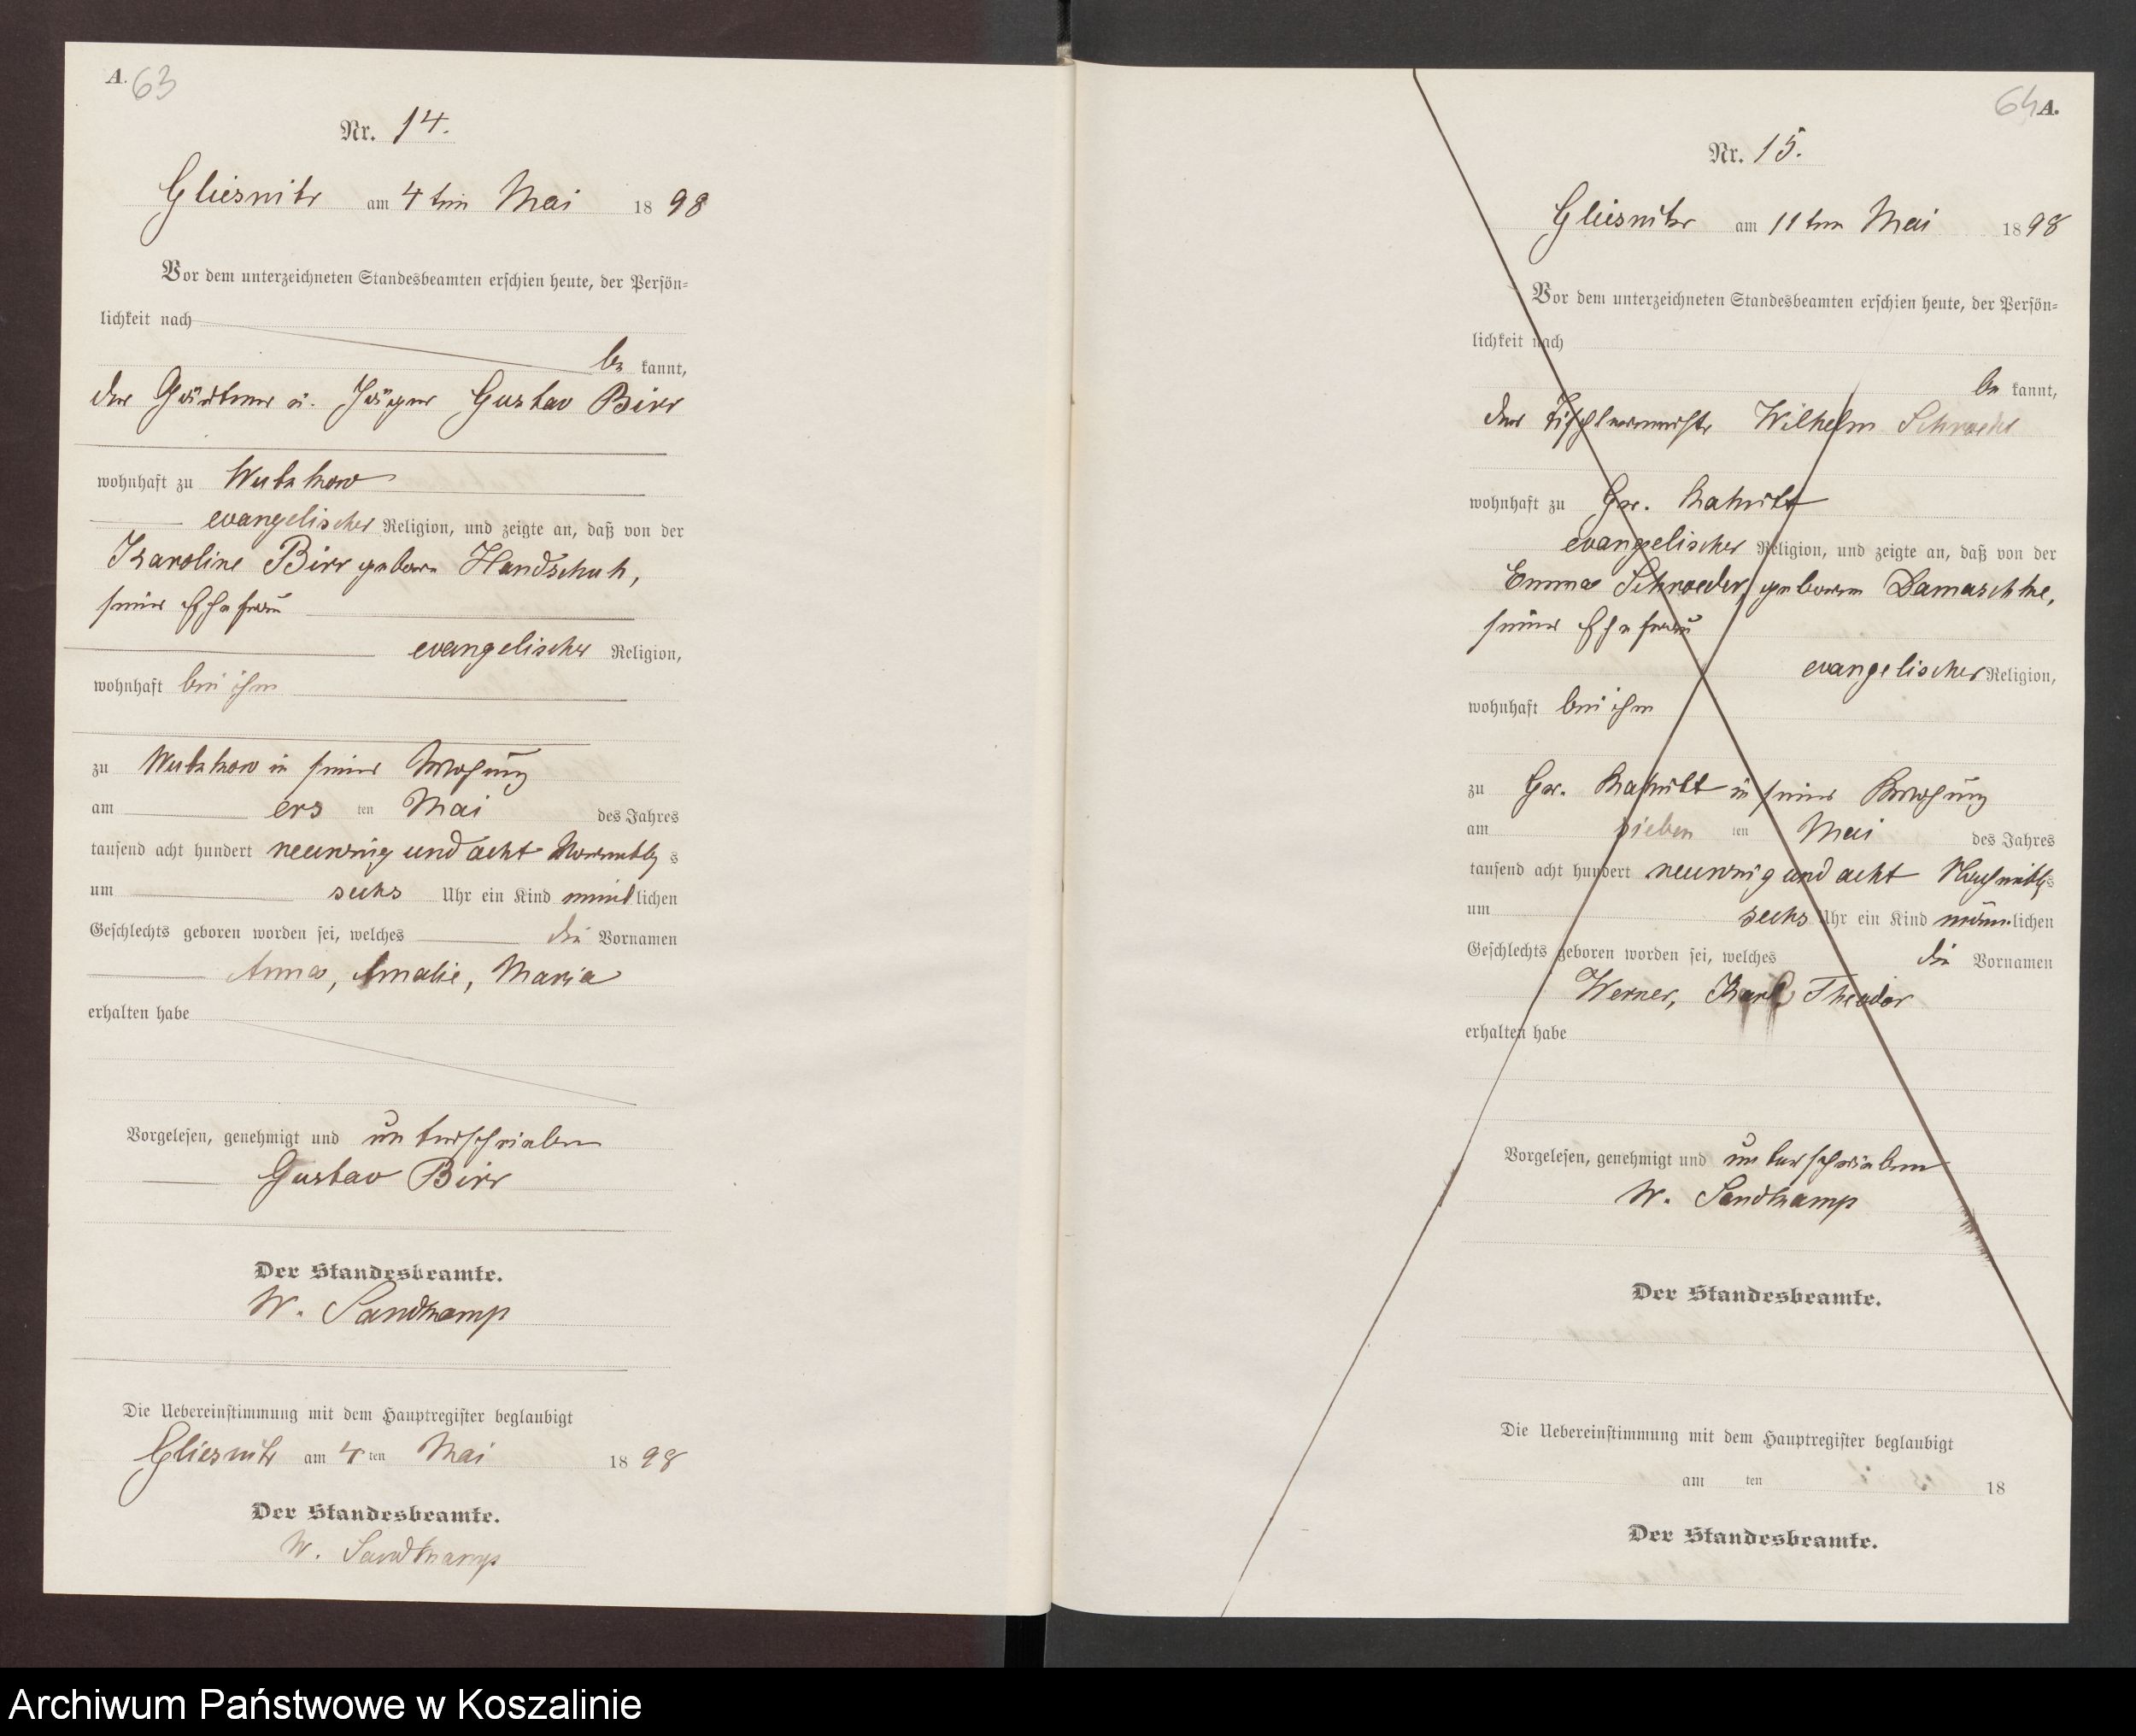 A. 63
Nr. 14.
Gliesnitz am 4ten Mai 1898
Vor dem unterzeichneten Standesbeamten erschien heute, der Persön-
lichkeit nach
be kannt,
der Gärtner u. Jäger Gustav Birr
wohnhaft zu Wutzkow
evangelischer Religion, und zeigte an, daß von der
Karoline Birr geborne Handschuh,
seiner Ehefrau
evangelischer Religion,
wohnhaft bei ihm
zu Wutzkow in seiner Wohnung
am ers ten Mai des Jahres
tausend acht hundert neunzig und acht Vormittags
um sechs Uhr ein Kind weiblichen
Geschlechts geboren worden sei, welches die Vornamen
Anna, Amalie, Maria
erhalten habe
Vorgelesen, genehmigt und unterschrieben
Gustav Birr
Der Standesbeamte.
W. Sandkamp
Die Uebereinstimmung mit dem Hauptregister beglaubigt
Gliesnitz am 4ten Mai 1898
Der Standesbeamte.
W. Sandkamp
64 A.
Nr. 15.
Gliesnitz am 11ten Mai 1898
Vor dem unterzeichneten Standesbeamten erschien heute, der Persön-
lichkeit nach
be kannt,
der Tischlermeister Wilhelm
wohnhaft zu Gr. Rakitt
evangelischer Religion, und zeigte an, daß von der
Emma Schroeder, geborne Damaschke,
seiner Ehefrau
evangelischer Religion,
wohnhaft bei ihm
zu Gr. Rakitt in seiner Wohnung
am sieben ten Mai des Jahres
tausend acht hundert neunzig und acht Nachmittags
um sechs Uhr ein Kind männlichen
Geschlechts geboren worden sei, welches die Vornamen
Werner, Karl, Theodor
erhalten habe
Vorgelesen, genehmigt und unterschrieben
W. Sandkamp
Der Standesbeamte.
Die Uebereinstimmung mit dem Hauptregister beglaubigt
am ten 18
Der Standesbeamte.
Archiwum Państwowe w Koszalinie